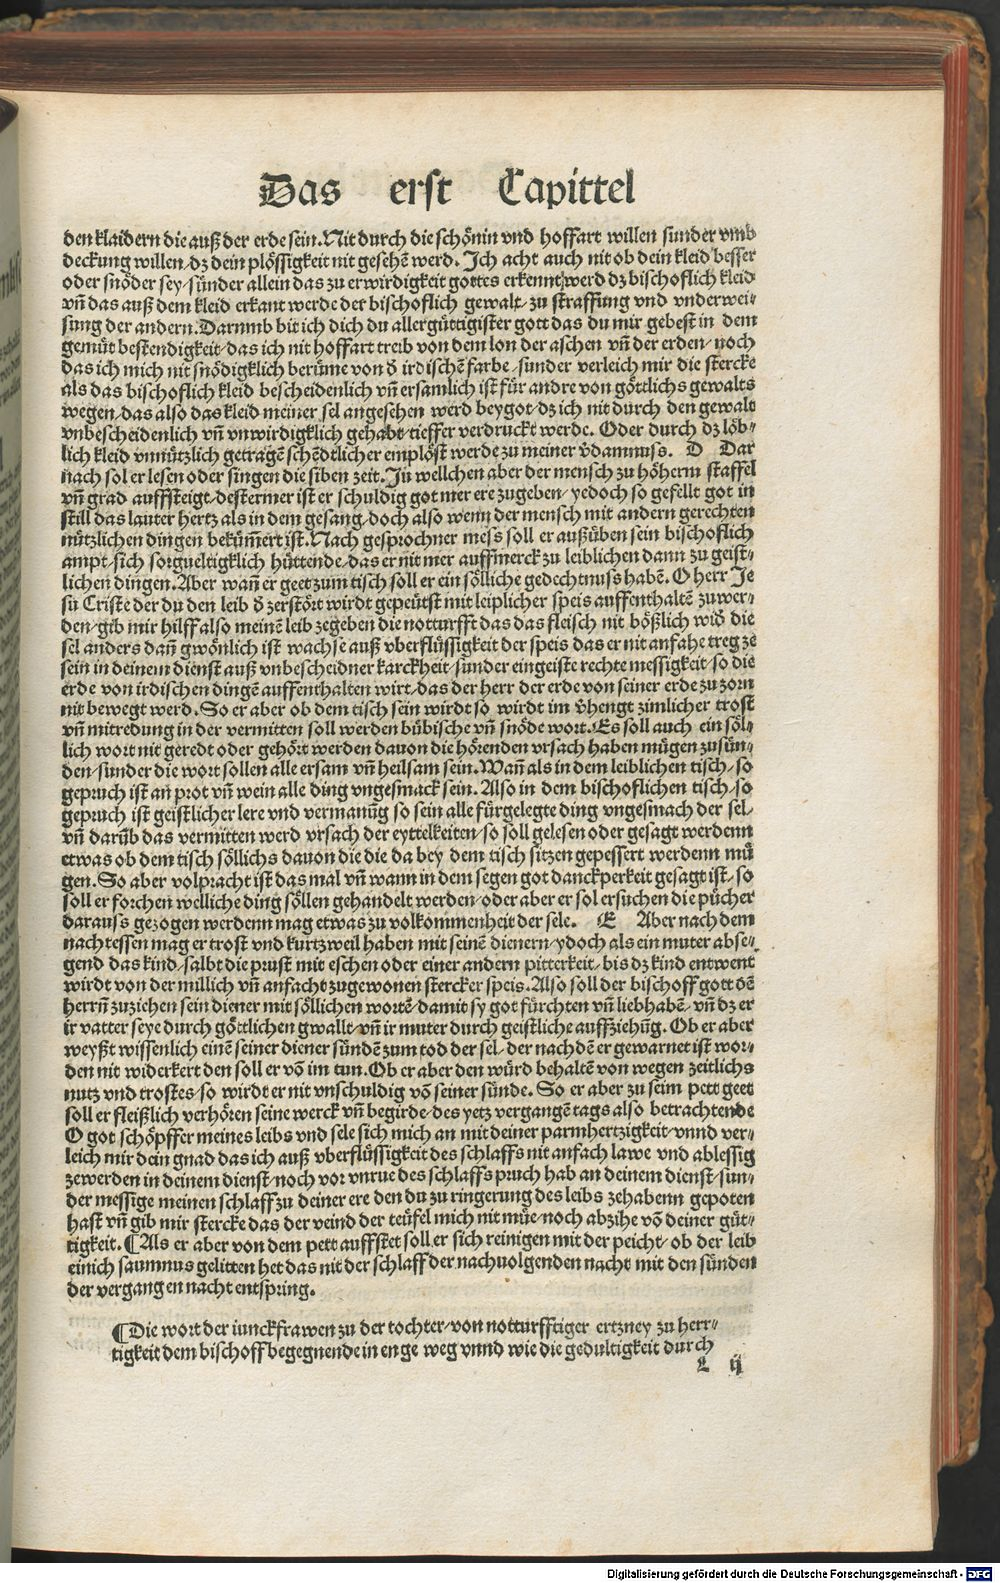 Das erst Capittel
den klaidern die auß der erde sein. Nit durch die schönin vnd hoffart willen sunder vmb
deckung willen/ dz dein plössigkeit nit gesehē werd. Ich acht auch nit ob dein kleid besser
oder snöder sey/ sünder allein das zu erwirdigkeit gottes erkennt werd dz bischoflich kleid
vn̄ das auß dem kleid erkant werde der bischoflich gewalt/ zu straffung vnd vnderwei/
sung der andern. Darumb bit ich dich du allergüttigister gott das du mir gebest in dem
gemüt bestendigkeit/ das ich nit hoffart treib von dem lon der aschen vn̄ der erden/ noch
das ich mich nit snödigklich berüme von d̕ irdischen farbe/ sunder verleich mir die stercke
als das bischoflich kleid bescheidenlich vn̄ ersamlich ist für andre von göttlichs gewalts
wegen/ das also das kleid meiner sel angesehen werd bey got/ dz ich nit durch den gewalt
vnbescheidenlich vn̄ vnwirdigklich gehabt/ tieffer verdruckt werde. Oder durch dz löb/
lich kleid vnnützlich getragē schēdtlicher emplöst werde zu meiner v̕damnuss. D Dar
nach sol er lesen oder singen die siben zeit. Jn wellchen aber der mensch zu höherm staffel
vn̄ grad auffsteigt/ destermer ist er schuldig got mer ere zugeben/ yedoch so gefellt got in
still das lauter hertz als in dem gesang/ doch also wenn der mensch mit andern gerechten
nützlichen dingen bekūmert ist. Nach gesprochner mess soll er außüben sein bischoflich
ampt/ sich sorgueltigklich hüttende/ das er nit mer auffmerck zu leiblichen dann zu geist/
lichen dingen. Aber wan̄ er geet zum tisch soll er ein sölliche gedechtnuss habē. O herr Je
su Criste der du den leib d̕ zerstört wirdt gepeütst mit leiplicher speis auffenthaltē zu wer/
den/ gib mir hilff also meinē leib zegeben die notturfft das das fleisch nit bößlich wid̕ die
sel anders dan̄ gwönlich ist wachse auß vberflüssigkeit der speis das er nit anfahe treg ze
sein in deinem dienst auß vnbescheidner karckheit/ sunder eingeiste rechte messigkeit/ so die
erde von irdischen dingē auffenthalten wirt/ das der herr der erde von seiner erde zu zorn
nit bewegt werd. So er aber ob dem tisch sein wirdt so wirdt im v̕hengt zimlicher trost
vn̄ mitredung in der vermitten soll werden bübische vn̄ snöde wort. Es soll auch ein söl/
lich wort nit geredt oder gehört werden dauon die hörenden vrsach haben mügen zusün/
den/ sunder die wort sollen alle ersam vn̄ heilsam sein. Wan̄ als in dem leiblichen tisch/ so
gepruch ist an prot vn̄ wein alle ding vngesmack sein. Also in dem bischoflichen tisch/ so
gepruch ist geistlicher lere vnd vermanūg so sein alle fürgelegte ding vngesmach der sel/
vn̄ darūb das vermitten werd vrsach der eyttelkeiten/ so soll gelesen oder gesagt werdenn
etwas ob dem tisch söllichs dauon die die da bey dem tisch sitzen gepessert werdenn mü
gen. So aber volpracht ist das mal vn̄ wann in dem segen got danckperkeit gesagt ist/ so
soll er forchen welliche ding söllen gehandelt werden/ oder aber er sol ersuchen die pücher
darauss gezogen werdenn mag etwas zu volkommenheit der sele. E Aber nach dem
nachtessen mag er trost vnd kurtzweil haben mit seinē dienern/ ydoch als ein muter abse/
gend das kind/ salbt die prust mit eschen oder einer andern pitterkeit/ bis dz kind entwent
wirdt von der millich vn̄ anfacht zugewonen stercker speis. Also soll der bischoff gott dē
herrn̄ zuziehen sein diener mit söllichen wortē/ damit sy got fürchten vn̄ liebhabē/ vn̄ dz er
ir vatter seye durch göttlichen gwallt/ vn̄ ir muter durch geistliche auffziehūg. Ob er aber
weyßt wissenlich einē seiner diener sündē zum tod der sel/ der nachdē er gewarnet ist wor/
den nit widerkert den soll er vō im tun. Ob er aber den würd behaltē von wegen zeitlichs
nutz vnd trostes/ so wirdt er nit vnschuldig vō seiner sünde. So er aber zu seim pett geet
soll er fleißlich verhören seine werck vn̄ begirde/ des yetz vergangē tags also betrachtende
O got schöpffer meines leibs vnd sele sich mich an mit deiner parmhertzigkeit/ vnnd ver/
leich mir dein gnad das ich auß vberflüssigkeit des schlaffs nit anfach lawe vnd ablessig
zewerden in deinem dienst/ noch vor vnrue des schlaffs pruch hab an deinem dienst/ sun/
der messige meinen schlaff zu deiner ere den du zu ringerung des leibs zehabenn gepoten
hast vn̄ gib mir stercke das der veind der teüfel mich nit müe/ noch abzihe vō deiner güt/
tigkeit. ¶ Als er aber von dem pett auffstet soll er sich reinigen mit der peicht/ ob der leib
einich saumnus gelitten het das nit der schlaff der nachuolgenden nacht mit den sünden
der vergangen nacht entspring.
¶ Die wort der iunckfrawen zu der tochter/ von notturfftiger ertzney zu herr/
tigkeit dem bischoff begegnende in enge weg vnnd wie die gedultigkeit durch
L ij
Digitalisierung gefördert durch die Deutsche Forschungsgemeinschaft - DFG